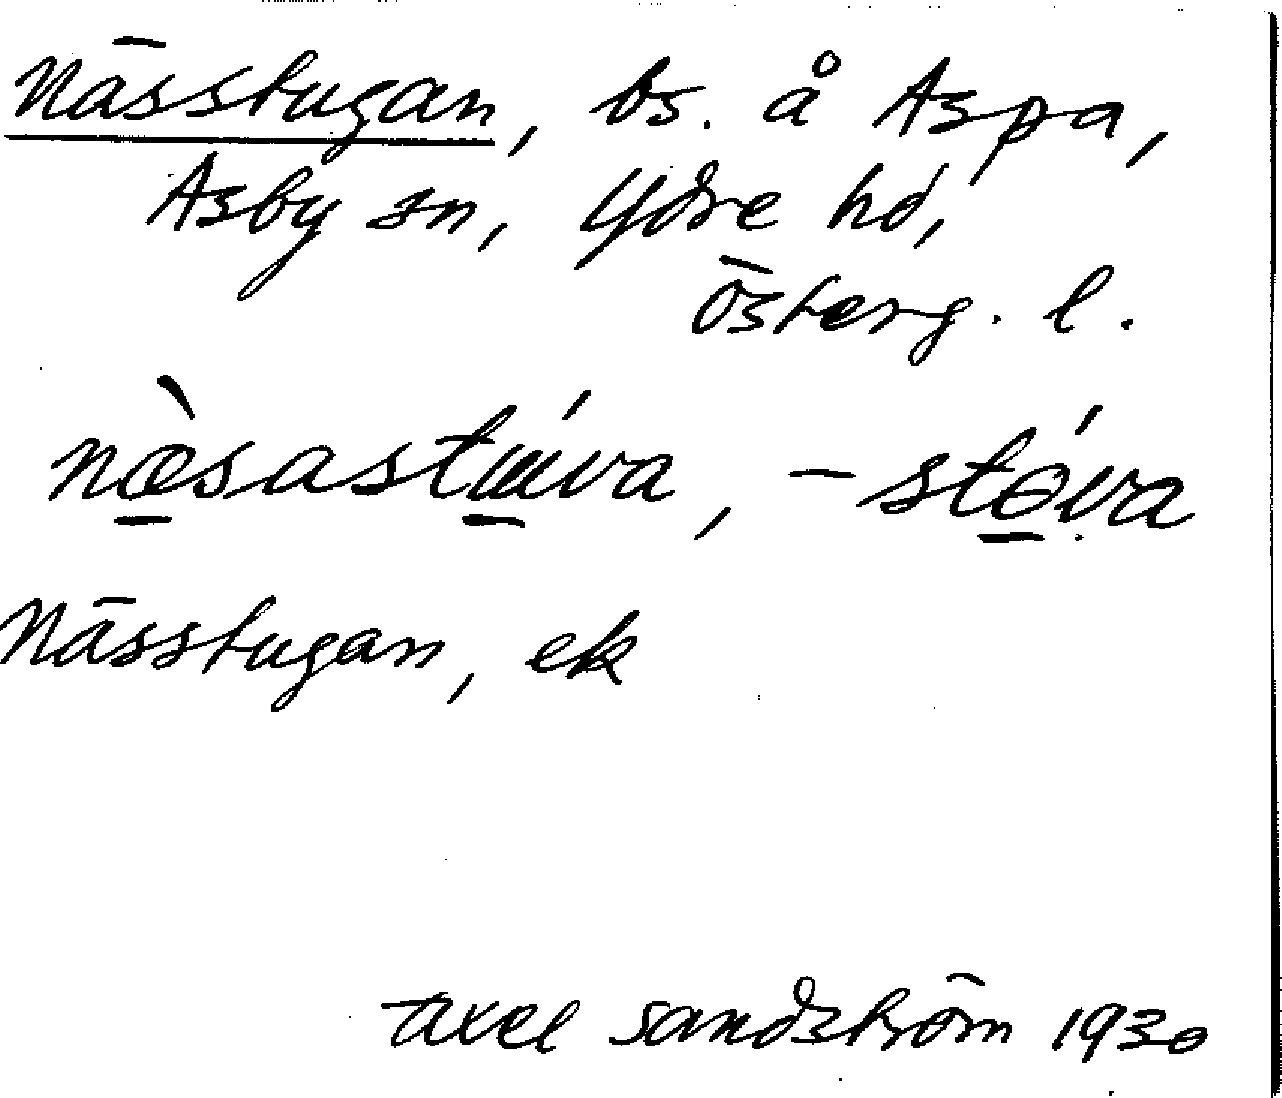 Nässtugan, bs. å Aspa,
Asby sn, Ydre hd,
Österg. l.
næ̀sastɯ́va, -stó̱va
Nässtugan, ek
Axel Sandström 1930